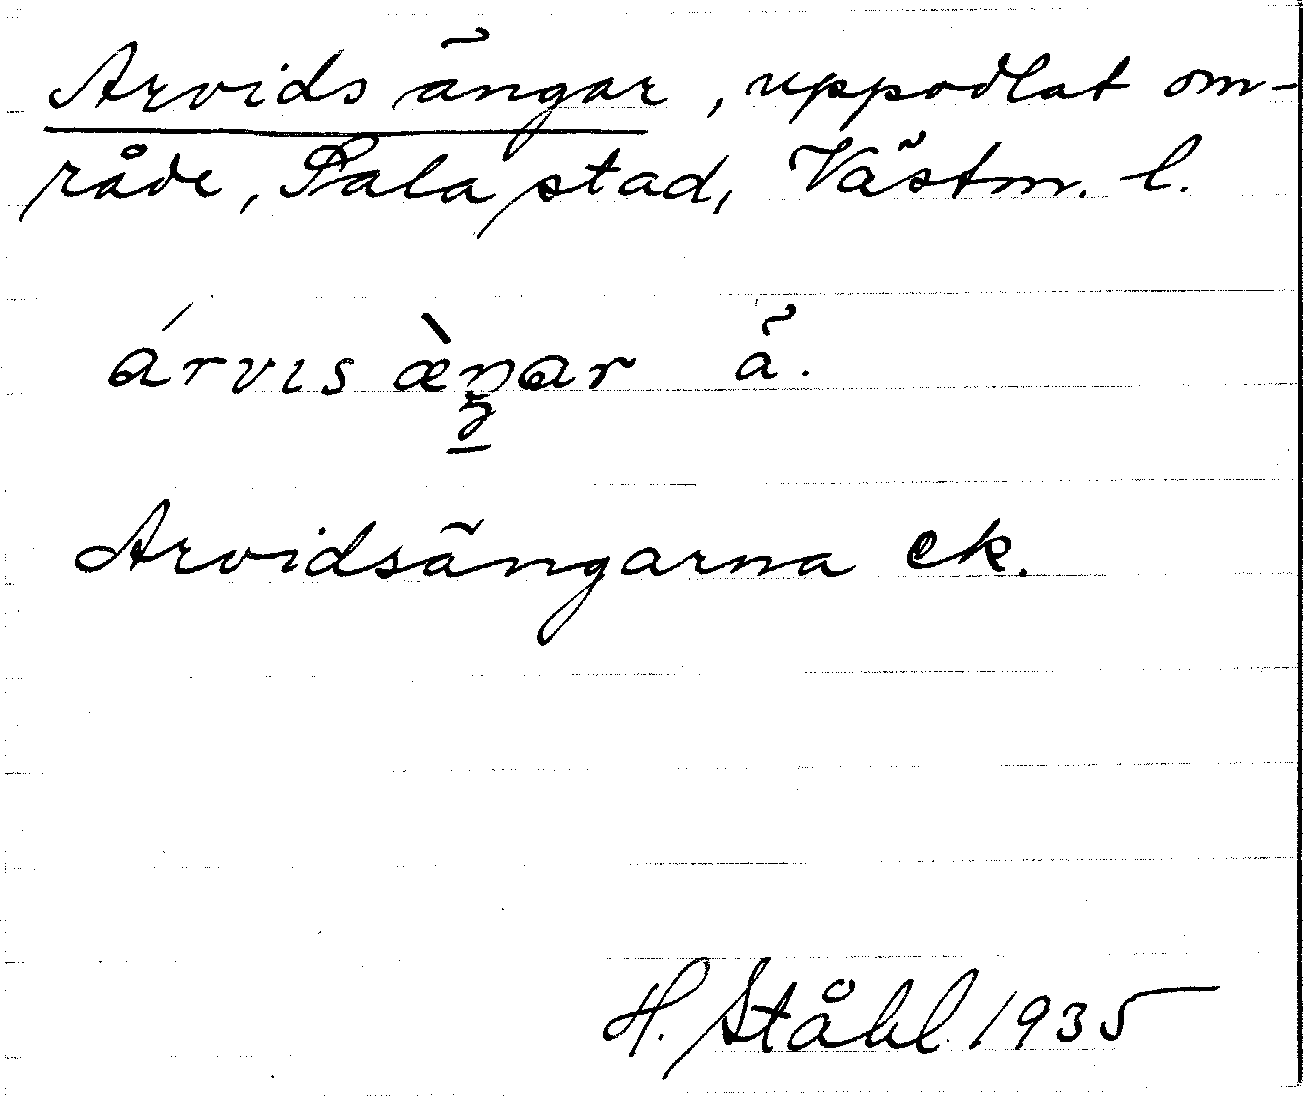 Arvids ängar, uppodlat om-
råde, Sala stad, Västm. l.
árvis æ̀ŋar ä.
Arvidsängarna ek.
H. Ståhl 1935